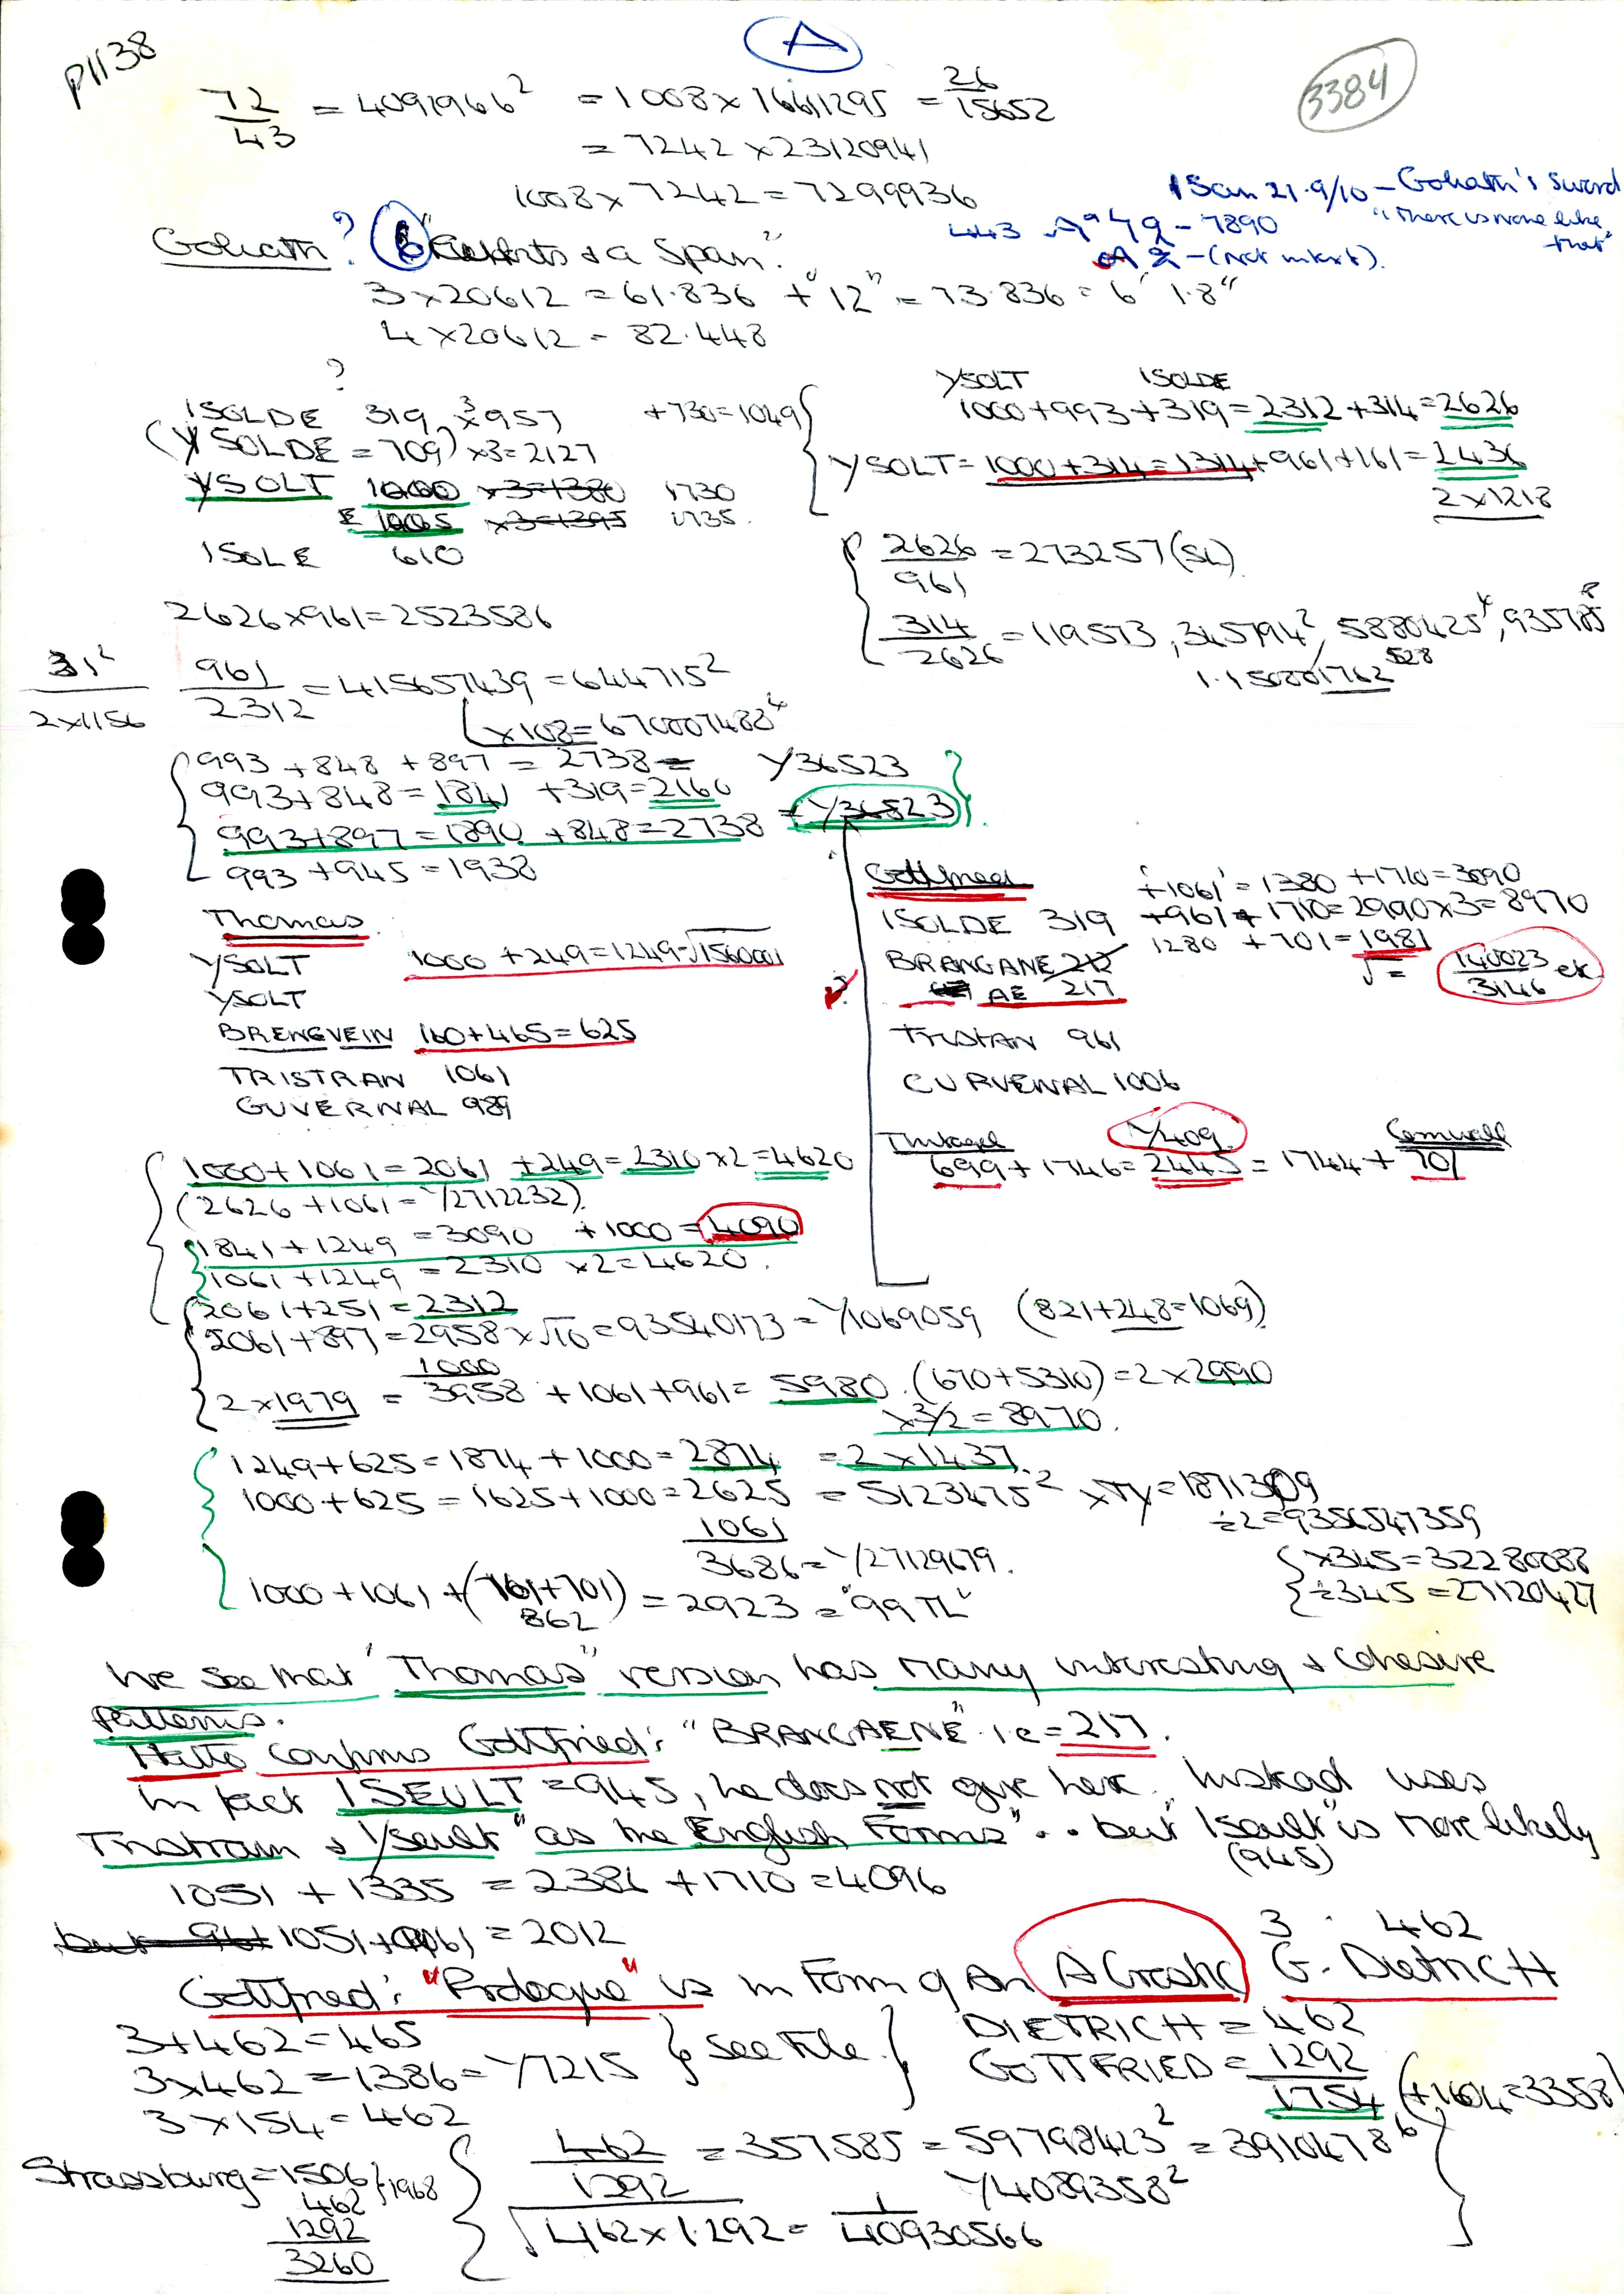 P1138
A
3384
72/43 = 4091966² = 1008 × 16611295 = 26/15652
= 7242 × 23120941
1008 × 7242 = 7299936
1 Sam 21.9/10 – Goliath's Sword
"There is none like that"
443
– 7890
– (not intext).
Goliath? 6 & a Span?
3 × 20612 = 61.836 + "12" = 73.836 = 6' 1.8"
4 × 20612 = 82.448
?
ISOLDE 319 ×3 957 +730=1049
(YSOLDE = 709) ×3=2127
YSOLT 1000 ×3=1380 1730
E 1005 ×3=1395 1735
ISOLE 610
YSOLT ISOLDE
1000+993+319=2312+314=2626
YSOLT=1000+314=1314+961+161=2436
2×1218
2626/961 = 273257 (SL)
314/2626 = 119573, 345794², 5880425⁴, 935785⁸
1.150001762 528
2626×961=2523586
31²/2×1156 961/2312 = 415657439 = 644715²
×108 = 670007488⁴
993 + 848 + 897 = 2738 = Y36523
993+848=1841 +319=2160
993+897=1890 +848=2738 = Y36523
993 +945=1938
Thomas
YSOLT 1000 +249=1249=√1560001
YSOLT
BRENGVEIN 160+465=625
TRISTRAN 1061
GUVERNAL 989
Gottfried
+1061 = 1380 +1710=3090
ISOLDE 319 +961+1710=2990×3=8970
1280 +701=1981
√= 140023/3146 etc
BRANGANE 212
AE 217
TRISTAN 961
CURVENAL 1006
Tintagel Y409 Cornwall
699+1746=2445=1744+701
1000+1061=2061 +249=2310×2=4620
(2626+1061=Y2712232)
1841+1249=3090 +1000=4090
1061+1249=2310 ×2=4620.
2061+251=2312
2061+897=2958×√10=93540173=Y1069059 (821+248=1069)
1000
2×1979 = 3958 +1061+961= 5980.(670+5310)=2×2990
×3/2=8970.
1249+625=1874+1000=2874 =2×1437.
1000+625=1625+1000=2625 =5123475² ×TY=18713109
÷2=9356547359
1061
3686=Y27129679.
×345=32280088
÷345=27120427
1000+1061+(161+701)=2923="99TL"
862
We see that "Thomas" version has many interesting & cohesive
patterns.
Hatto confirms Gottfried: "BRANGAENE" i.e=217.
In fact ISEULT=945, he does not give here. Instead uses
Tristram & Yseult "as the English Forms".. but "Iseult" is more likely
(945)
1051 + 1335 = 2386 +1710=4096
1051+961=2012
3 . 462
Gottfried: "Prologue" is in Form of An ACrostic G. DIETRICH
3+462=465
3×462=1386=Y7215
3×154=462
See File.
DIETRICH = 462
GOTTFRIED = 1292
1754 (+1604=3358)
Strassburg=1506 }1968
462
1292
3260
462/1292 = 357585 = 59798423² = 3910478⁶
Y4089358²
√462×1.292 = 1/40930566